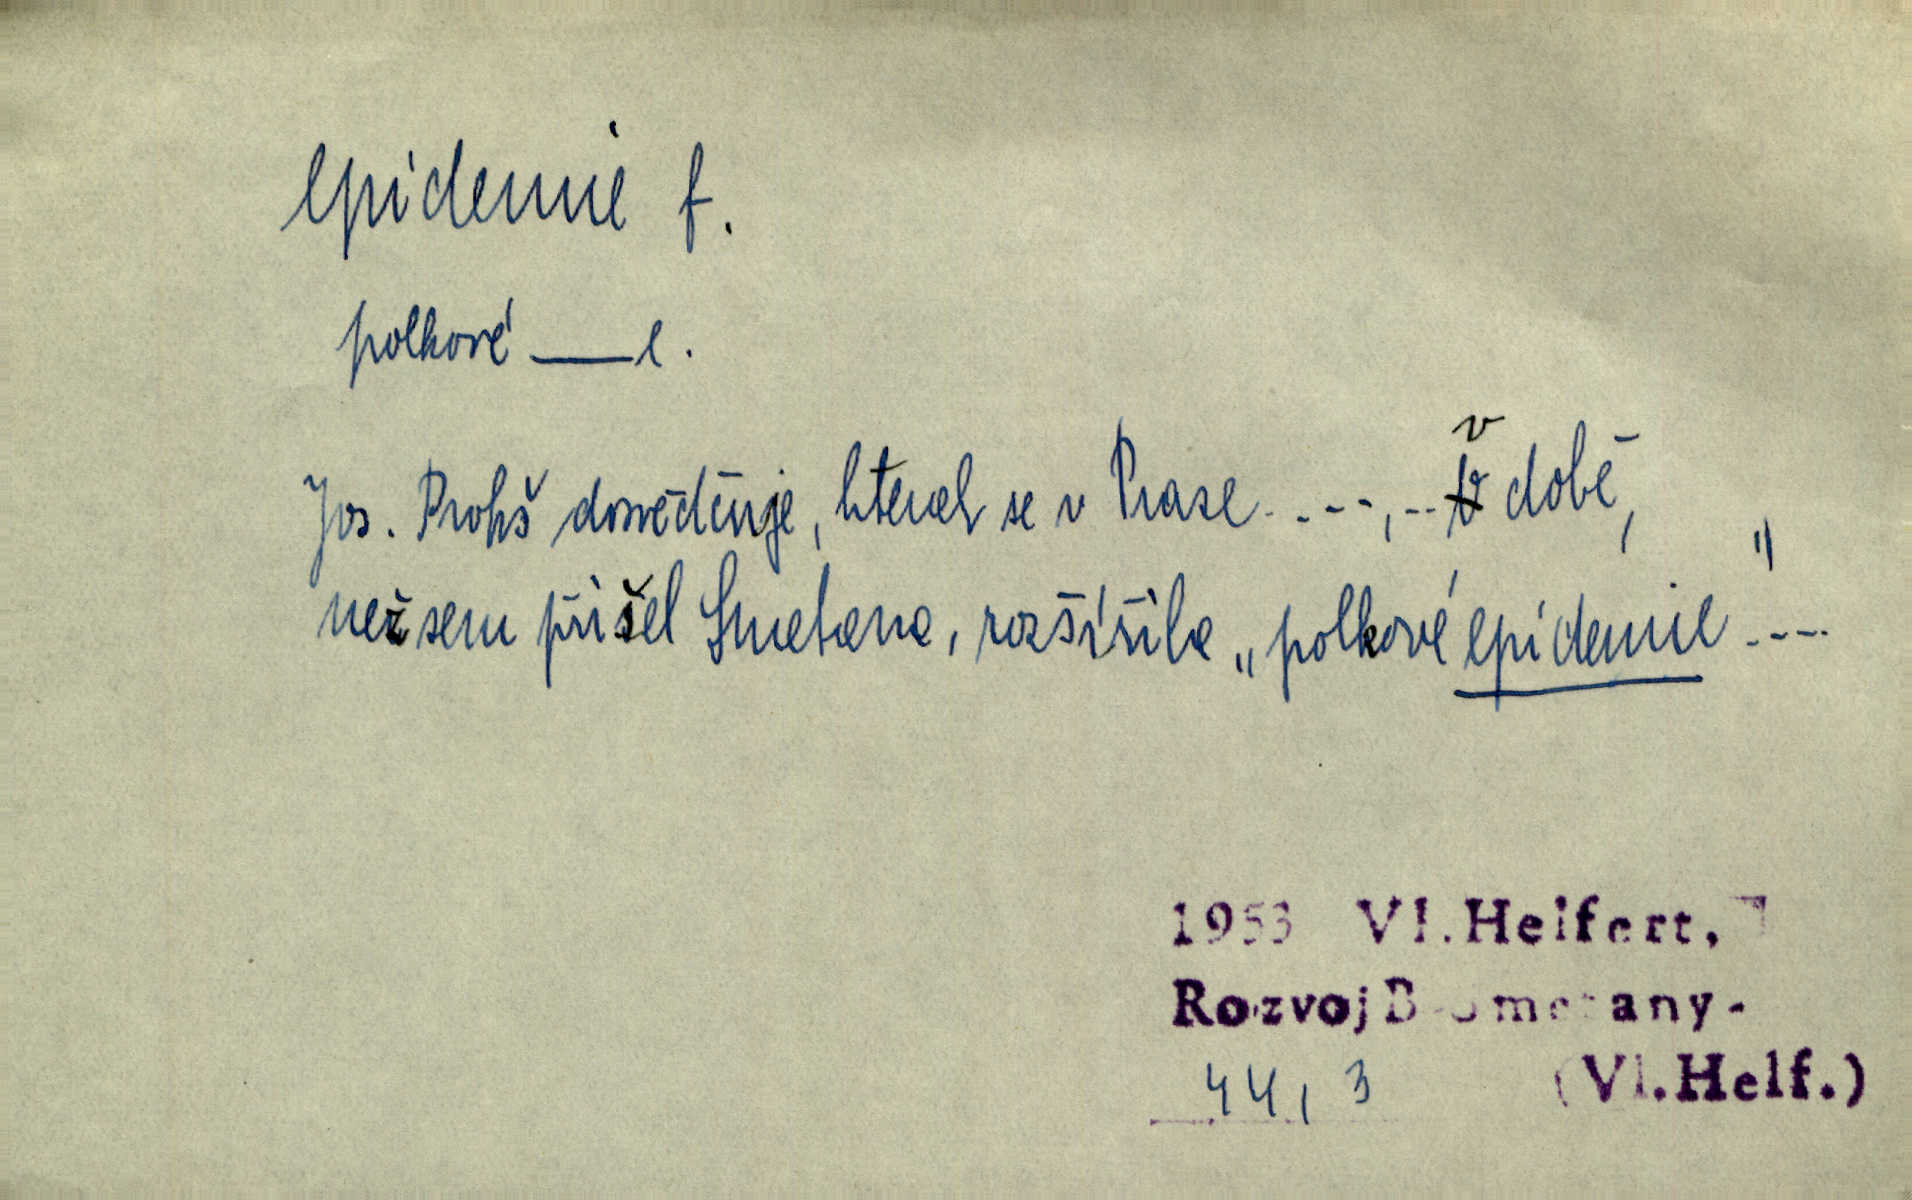 epidemie f.
polkové ——e.
Jos. Prokš dosvědčuje, kterak se v Praze ....,.. v době,
než sem přišel Smetana, rozšířila „polkové epidemie" ....
1953 Vl. Helfert,
Rozvoj B. Smetany-
44, 3 (Vl. Helf.)